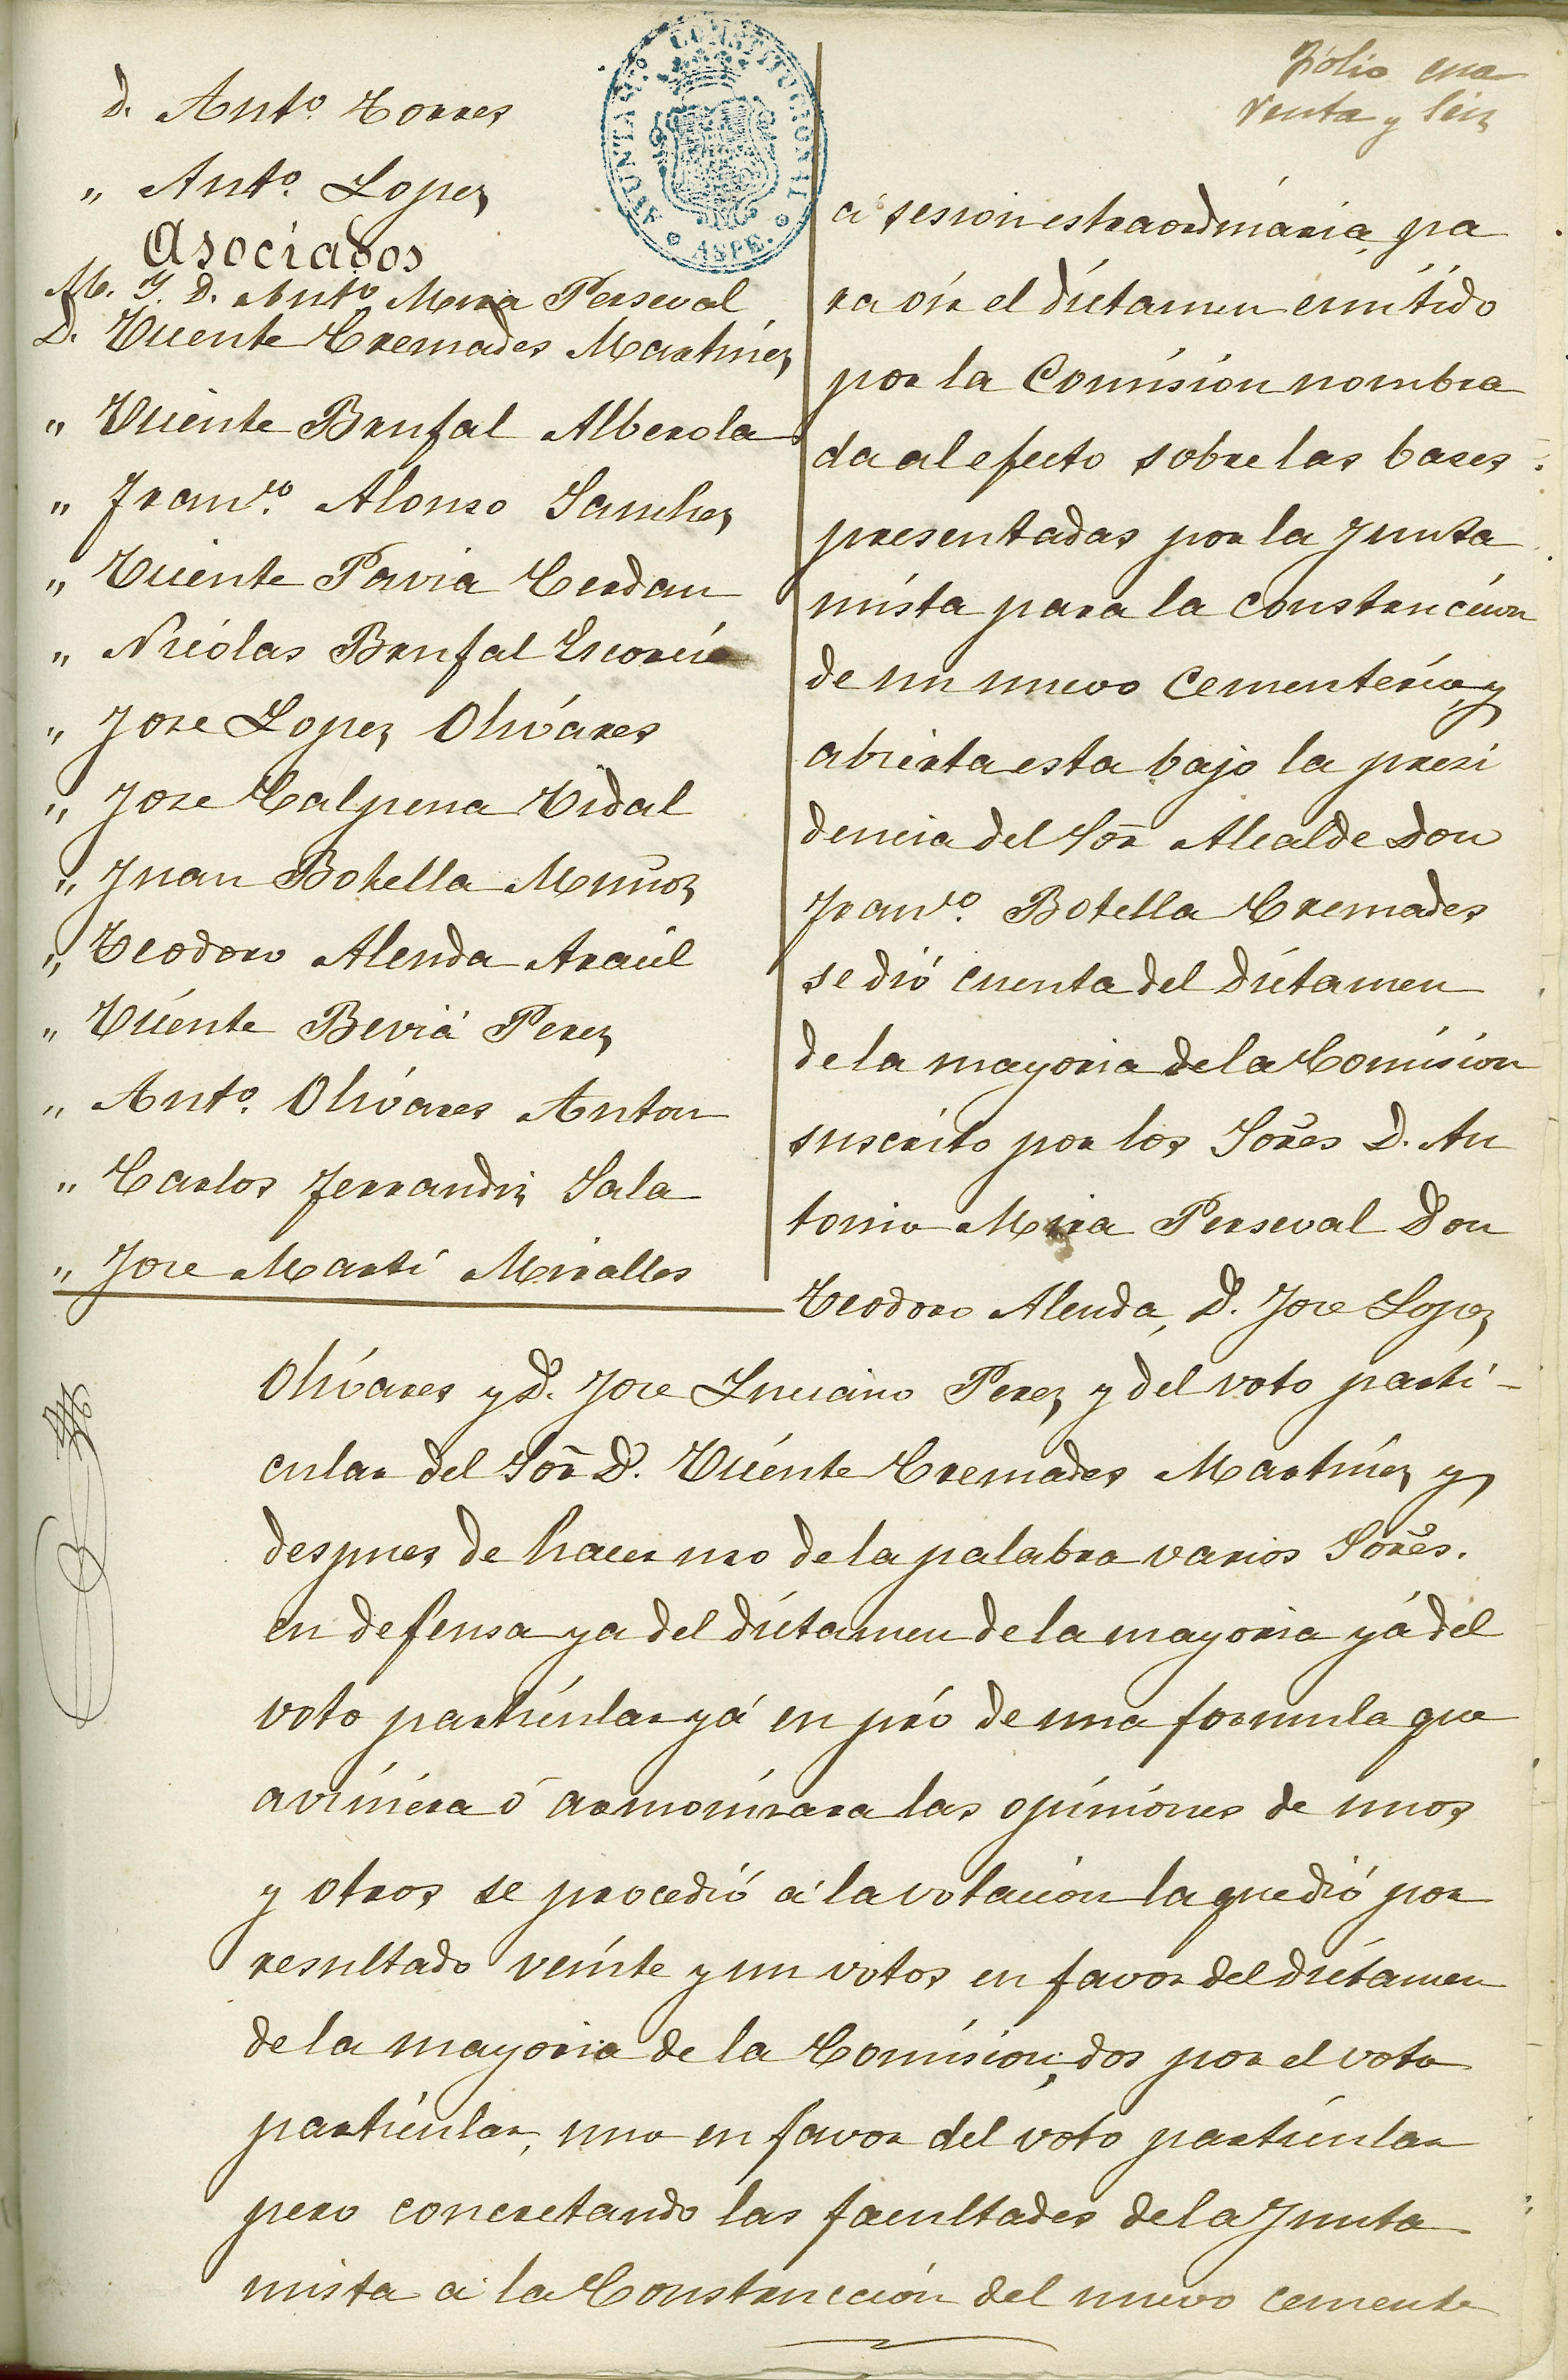 Fólio cua
renta y seis
AYUNTAMTO. CONSTITUCIONAL
* ASPE. *
d. Anto. Torres
" Anto. Lopez
Asociados
M. Y. D. Anto Mira Perseval
D. Vicente Cremades Martinez
" Vicente Brufal Alberola
" Franco. Alonso Sanchez
" Vicente Pavia Cerdan
" Nicolas Brufal Escorcia
" Jose Lopez Olivares
" Jose Calpena Vidal
" Juan Botella Muñoz
" Teodoro Alenda Araúl
" Vicente Beviá Perez
" Anto. Olivares Anton
" Carlos Ferrandiz Sala
" Jose Martí Miralles
á sesion estraordinária pa
ra oir el dictamen emitido
por la Comision nombra
da al efecto sobre las bases
presentadas por la Junta
mista para la construccion
de un nuevo cementerio, y
abierta esta bajo la presi
dencia del Sor Alcalde Don
Franco. Botella Cremades
se dió cuenta del dictamen
de la mayoria de la Comision
suscrito por los Sores D. An
tonio Mira Perseval Don
Teodoro Alenda, D. Jose Lopez
Olivares y D. Jose Luciano Perez y del voto parti-
cular del Sor D. Vicente Cremades Martinez y
despues de hacer uso de la palabra varios Sores.
en defensa ya del dictamen de la mayoria yá del
voto particular yá en pró de una formula que
aviniera ó armonizara las opiniones de unos
y otros se procedió á la votacion la que dió por
resultado veinte y un votos en favor del dictamen
de la mayoria de la Comision; dos por el voto
particular, uno en favor del voto particular
pero concretando las facultades de la Junta
mista á la Construccion del nuevo cemente